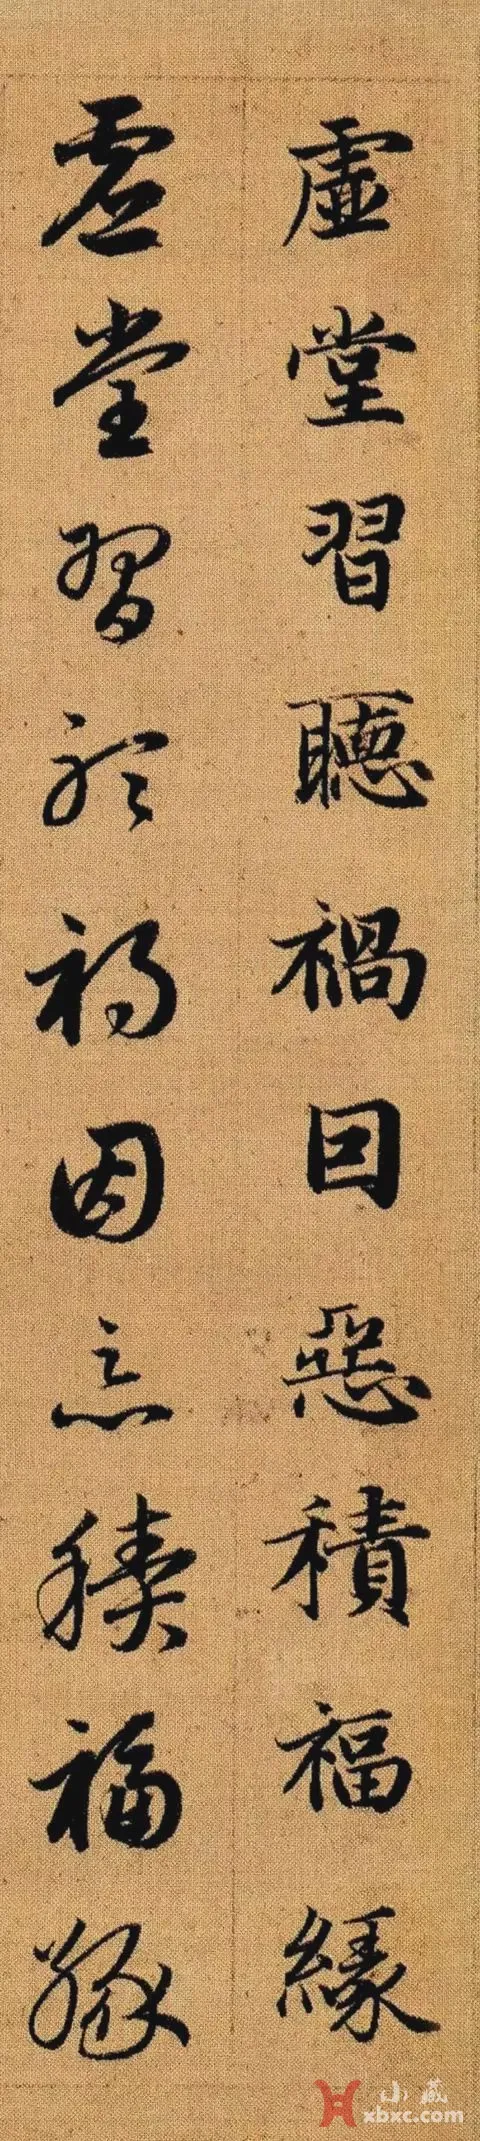 虛堂習聽禍因惡積福緣
虛堂習聽禍因惡積福緣
小藏
xbxc.com